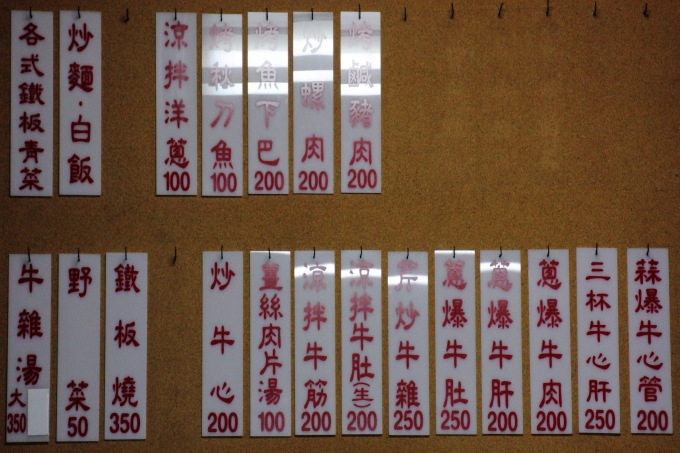 各式鐵板青菜
炒麵·白飯
涼拌洋蔥100
烤秋刀魚100
烤魚下巴200
炒螺肉200
烤鹹豬肉200
牛雜湯大350
野菜50
鐵板燒350
炒牛心200
薑絲肉片湯100
涼拌牛筋200
涼拌牛肚(生)200
芹炒牛雜250
蔥爆牛肚250
蔥爆牛肝200
蔥爆牛肉200
三杯牛心肝250
蒜爆牛心管200